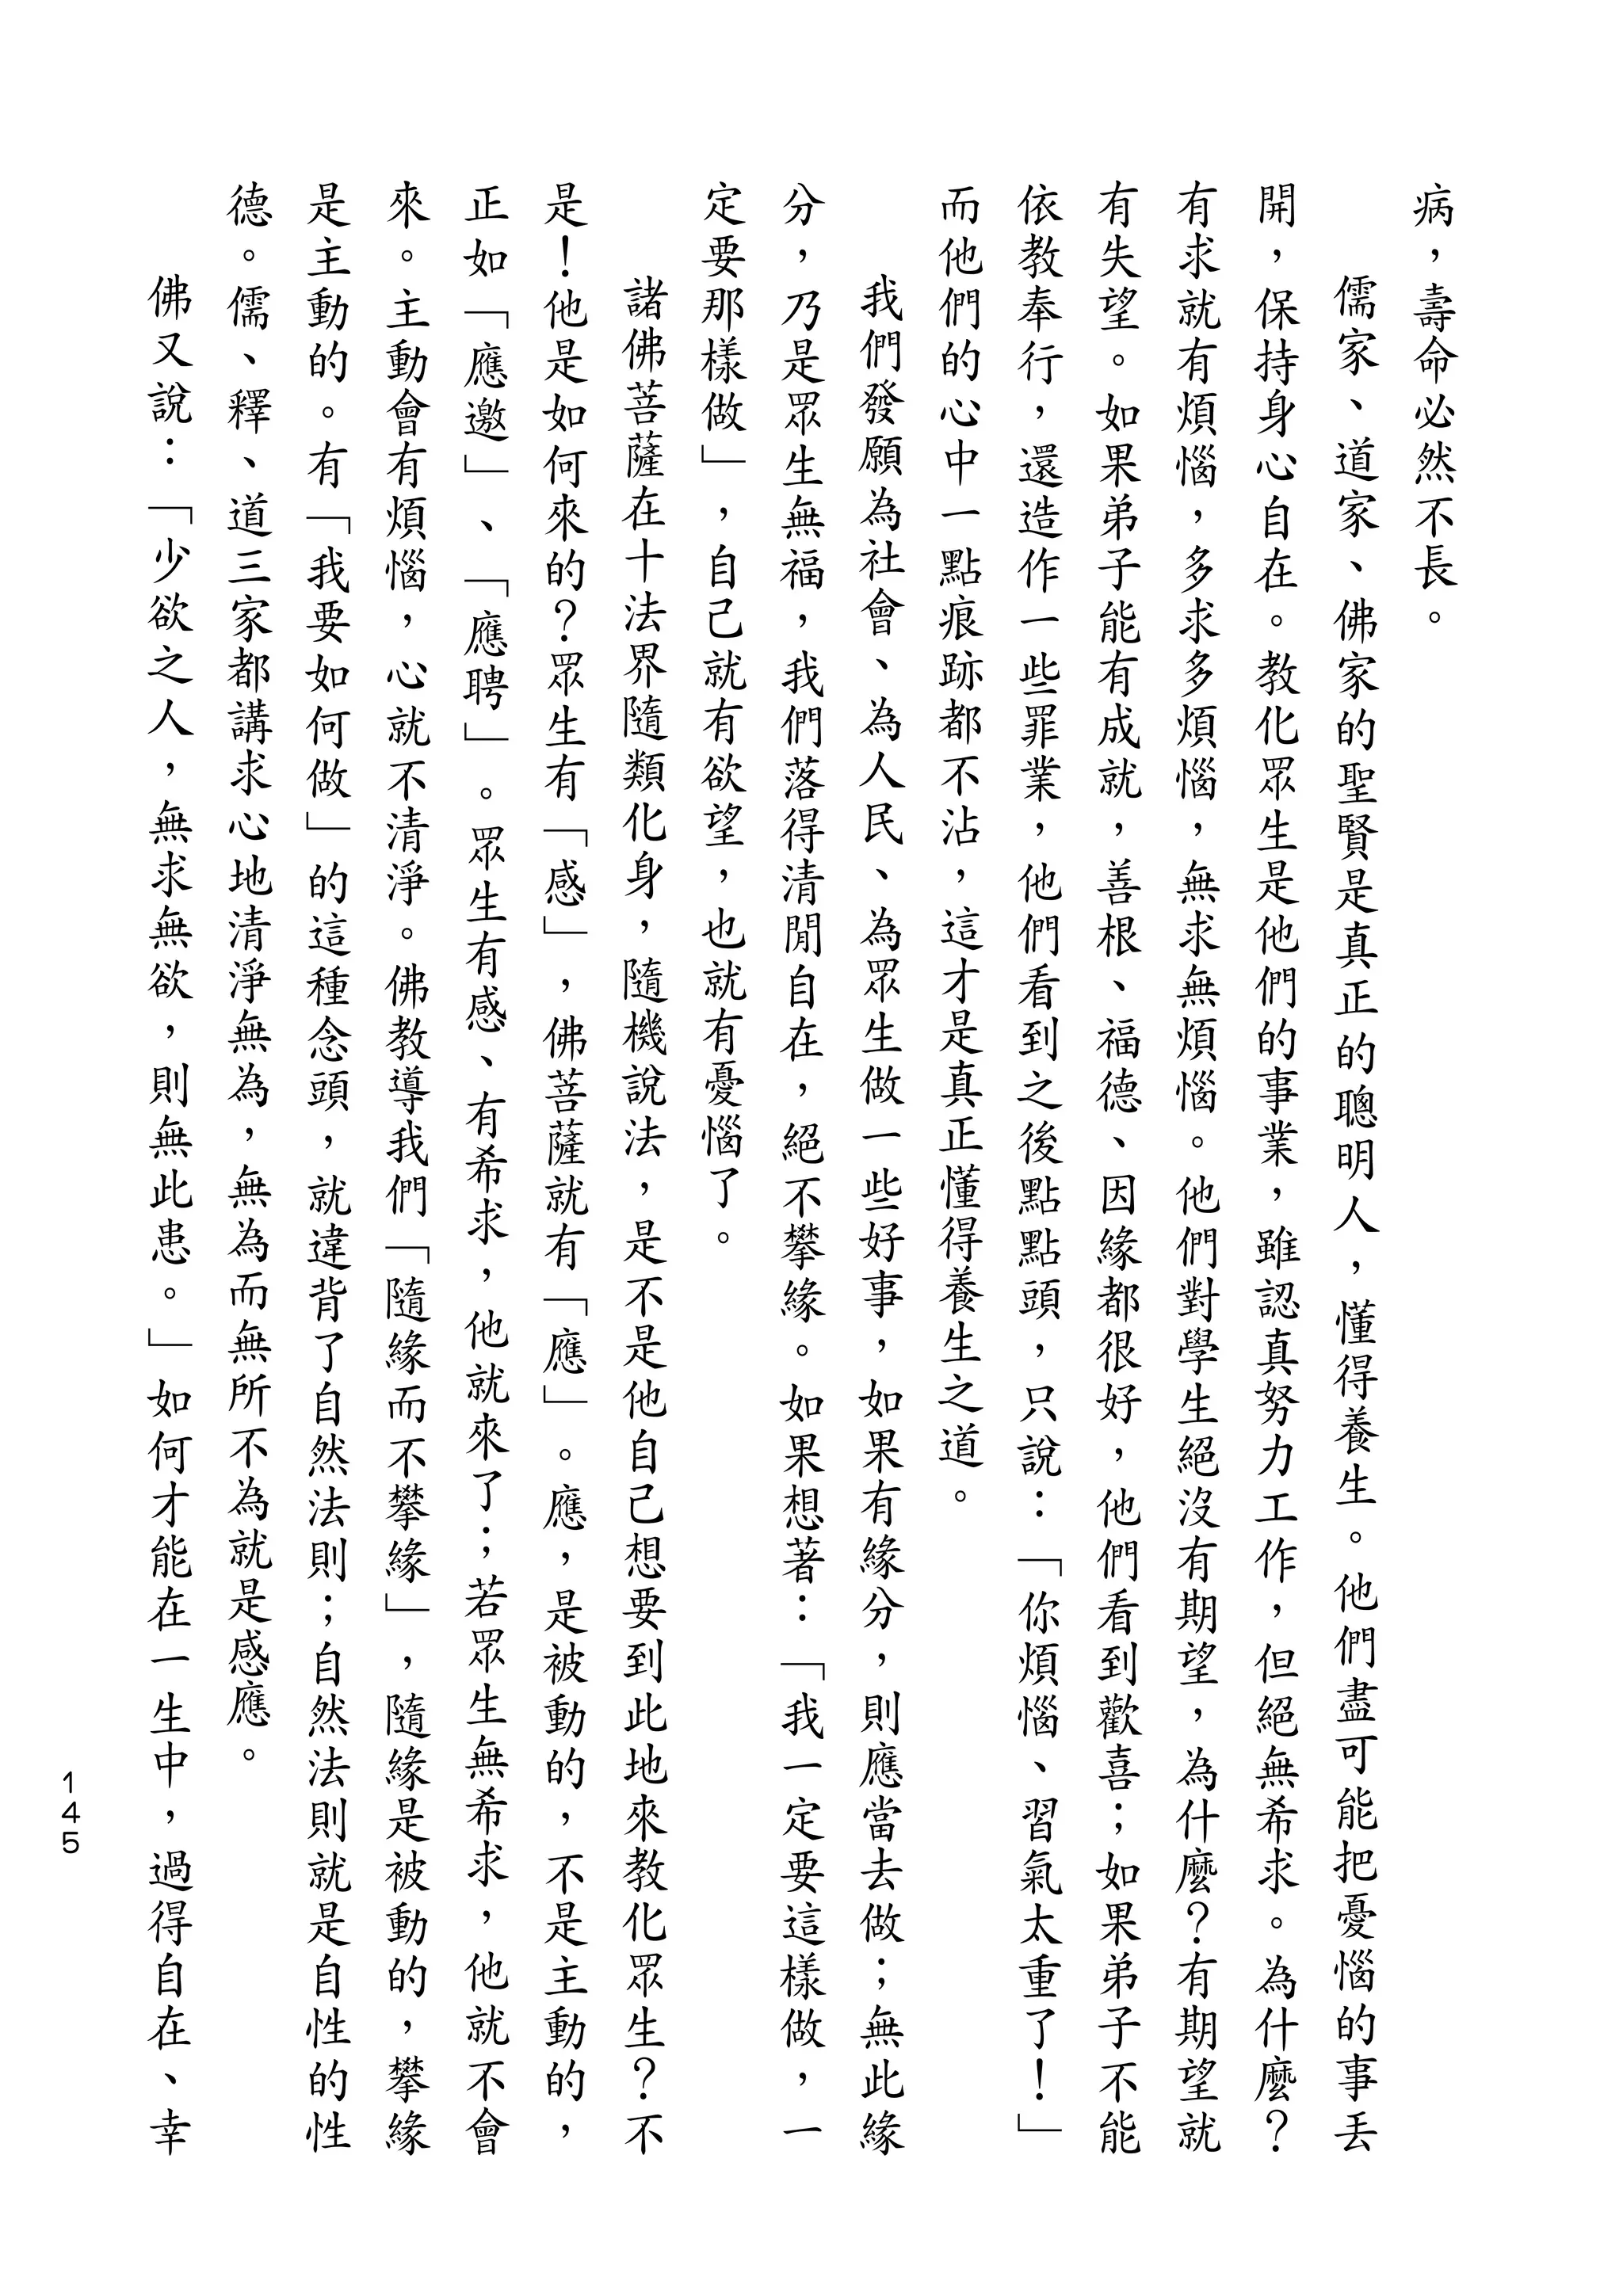 病，壽命必然不長。
儒家、道家、佛家的聖賢是真正的聰明人，懂得養生。他們盡可能把憂惱的事丟
開，保持身心自在。教化眾生是他們的事業，雖認真努力工作，但絕無希求。為什麼？
有求就有煩惱，多求多煩惱，無求無煩惱。他們對學生絕沒有期望，為什麼？有期望就
有失望。如果弟子能有成就，善根、福德、因緣都很好，他們看到歡喜；如果弟子不能
依教奉行，還造作一些罪業，他們看到之後點點頭，只說：「你煩惱、習氣太重了！」
而他們的心中一點痕跡都不沾，這才是真正懂得養生之道。
我們發願為社會、為人民、為眾生做一些好事，如果有緣分，則應當去做；無此緣
分，乃是眾生無福，我們落得清閒自在，絕不攀緣。如果想著：「我一定要這樣做，一
定要那樣做」，自己就有欲望，也就有憂惱了。
諸佛菩薩在十法界隨類化身，隨機說法，是不是他自己想要到此地來教化眾生？不
是！他是如何來的？眾生有「感」，佛菩薩就有「應」。應，是被動的，不是主動的，
正如「應邀」、「應聘」。眾生有感、有希求，他就來了；若眾生無希求，他就不會
來。主動會有煩惱，心就不清淨。佛教導我們「隨緣而不攀緣」，隨緣是被動的，攀緣
是主動的。有「我要如何做」的這種念頭，就違背了自然法則；自然法則就是自性的性
德。儒、釋、道三家都講求心地清淨無為，無為而無所不為就是感應。
佛又說：「少欲之人，無求無欲，則無此患。」如何才能在一生中，過得自在、幸
145